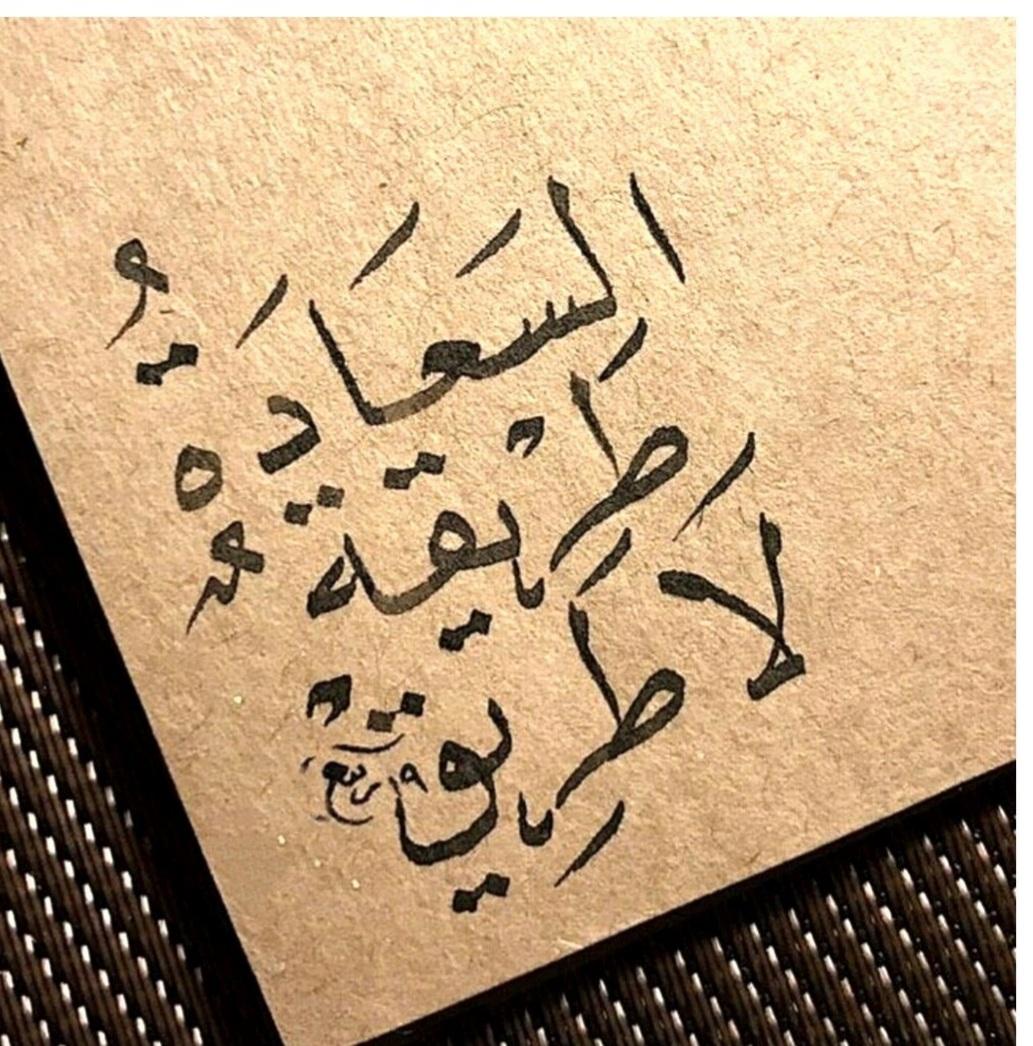 السَعَادَةُ
طَرِيْقَة
لَا طَرِيقْ
ربيع